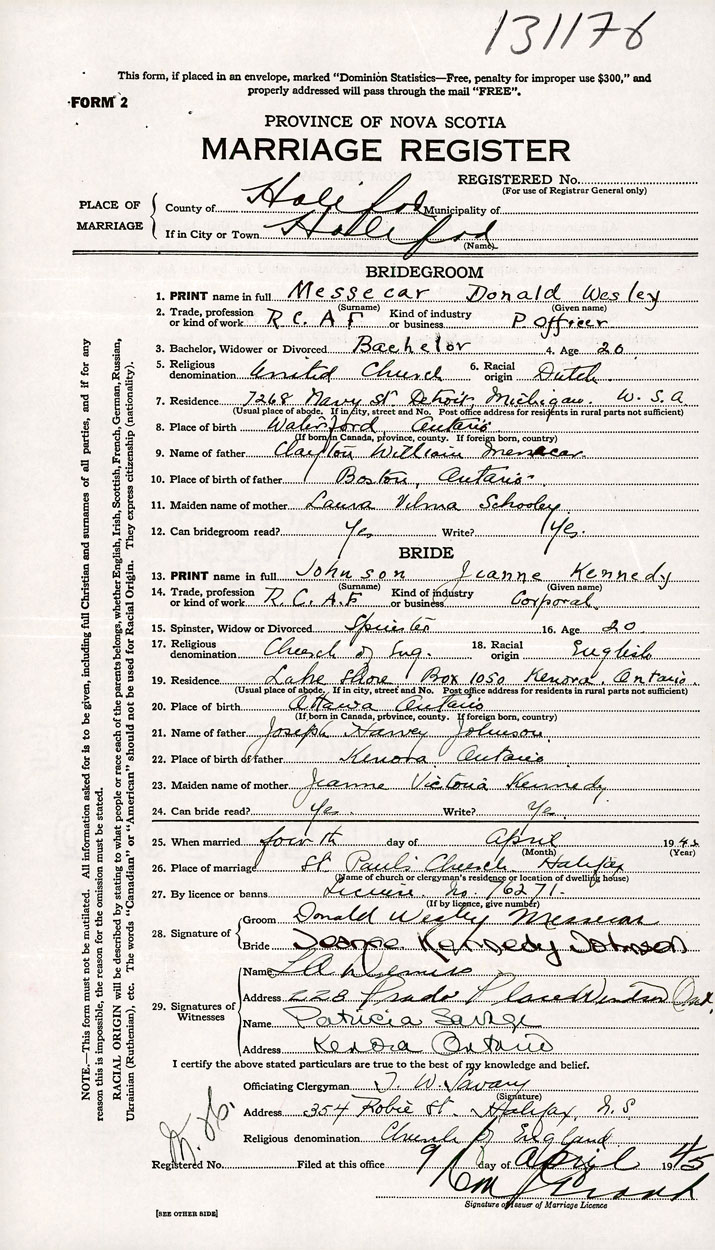 131176
This form, if placed in an envelope, marked "Dominion Statistics—Free, penalty for improper use $300," and
properly addressed will pass through the mail "FREE".
FORM 2
PROVINCE OF NOVA SCOTIA
MARRIAGE REGISTER
REGISTERED No.
(For use of Registrar General only)
PLACE OF MARRIAGE
County of Halifax Municipality of
If in City or Town Halifax
(Name)
BRIDEGROOM
1. PRINT name in full Messecar Donald Wesley
(Surname) (Given name)
2. Trade, profession or kind of work R.C.A.F Kind of industry or business P Officer
3. Bachelor, Widower or Divorced Bachelor 4. Age 20
5. Religious denomination United Church 6. Racial origin Dutch
7. Residence 7268 Navy St Detroit, Michigan. U.S.A
(Usual place of abode. If in city, street and No. Post office address for residents in rural parts not sufficient)
8. Place of birth Waterford Ontario
(If born in Canada, province, county. If foreign born, country)
9. Name of father Clayton William Messecar
10. Place of birth of father Boston, Ontario
11. Maiden name of mother Laura Vilma Schooley
12. Can bridegroom read? Yes Write? Yes.
BRIDE
13. PRINT name in full Johnson Jeanne Kennedy
(Surname) (Given name)
14. Trade, profession or kind of work R.C.A.F Kind of industry or business Corporal
15. Spinster, Widow or Divorced Spinster 16. Age 20
17. Religious denomination Church of Eng. 18. Racial origin English
19. Residence Lake Shore Box 1050 Kenora, Ontario
(Usual place of abode. If in city, street and No. Post office address for residents in rural parts not sufficient)
20. Place of birth Ottawa Ontario
(If born in Canada, province, county. If foreign born, country)
21. Name of father Joseph Harvey Johnson
22. Place of birth of father Kenora Ontario
23. Maiden name of mother Jeanne Victoria Kennedy
24. Can bride read? Yes. Write? Yes.
25. When married fourth day of April 19
(Month) (Year)
26. Place of marriage St Paul's Church Halifax
(Name of church or clergyman's residence or location of dwelling house)
27. By licence or banns License No. 76271.
(If by licence, give number)
28. Signature of
Groom Donald Wesley Messecar
Bride Jeanne Kennedy Johnson
29. Signatures of Witnesses
Name
Address 228 Prado Place Windsor Ont.
Name Patricia Savage
Address Kenora Ontario
I certify the above stated particulars are true to the best of my knowledge and belief.
Officiating Clergyman T. W. Savary
(Signature)
Address 354 Robie St. Halifax, N.S.
Religious denomination Church of England
Registered No. Filed at this office 9 day of April 1945
Signature of Issuer of Marriage Licence
[SEE OTHER SIDE]
NOTE.—This form must not be mutilated. All information asked for is to be given, including full Christian and surnames of all parties, and if for any
reason this is impossible, the reason for the omission must be stated.
RACIAL ORIGIN will be described by stating to what people or race each of the parents belongs, whether English, Irish, Scottish, French, German, Russian,
Ukrainian (Ruthenian), etc. The words "Canadian" or "American" should not be used for Racial Origin. They express citizenship (nationality).